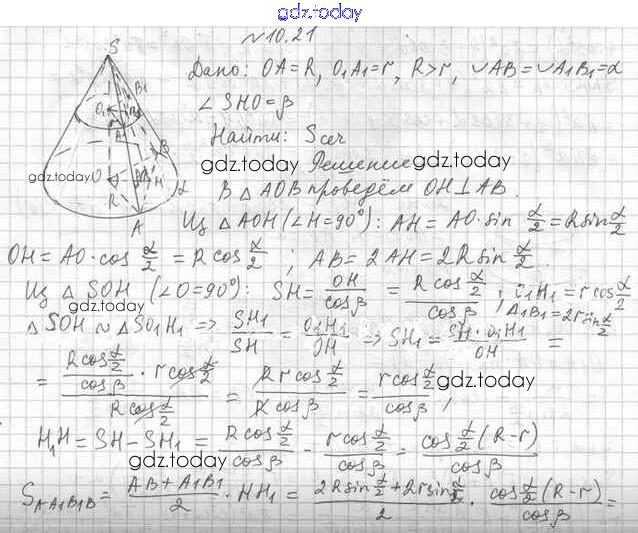 gdz.today
№10.21
Дано: OA=R, O₁A₁=r, R>r, ∪AB=∪A₁B₁=α
∠SHO=β
Найти: Sсеч
gdz.today gdz.today
Решение
gdz.today
В △AOB проведём OH⊥AB.
Из △AOH (∠H=90°): AH=AO·sin α/2=R sin α/2
OH=AO·cos α/2=R cos α/2; AB=2AH=2R sin α/2.
Из △SOH (∠O=90°): SH=OH/cosβ=(R cos α/2)/cosβ; O₁H₁=r cos α/2
A₁B₁=2r sin α/2
gdz.today gdz.today
△SOH∾△SO₁H₁ => SH₁/SH=O₁H₁/OH => SH₁=(SH·O₁H₁)/OH=
=((R cos α/2)/cosβ·r cos α/2)/(R cos α/2)=(R r cos α/2)/(R cosβ)=(r cos α/2)/cosβ,
gdz.today gdz.today
H₁H=SH-SH₁=(R cos α/2)/cosβ-(r cos α/2)/cosβ=(cos α/2(R-r))/cosβ
gdz.today
S AA₁B₁B=(AB+A₁B₁)/2·HH₁=(2R sin α/2+2r sin α/2)/2·(cos α/2(R-r))/cosβ=
gdz.today gdz.today
S
B₁
O₁
A₁
O
R
H
B
A